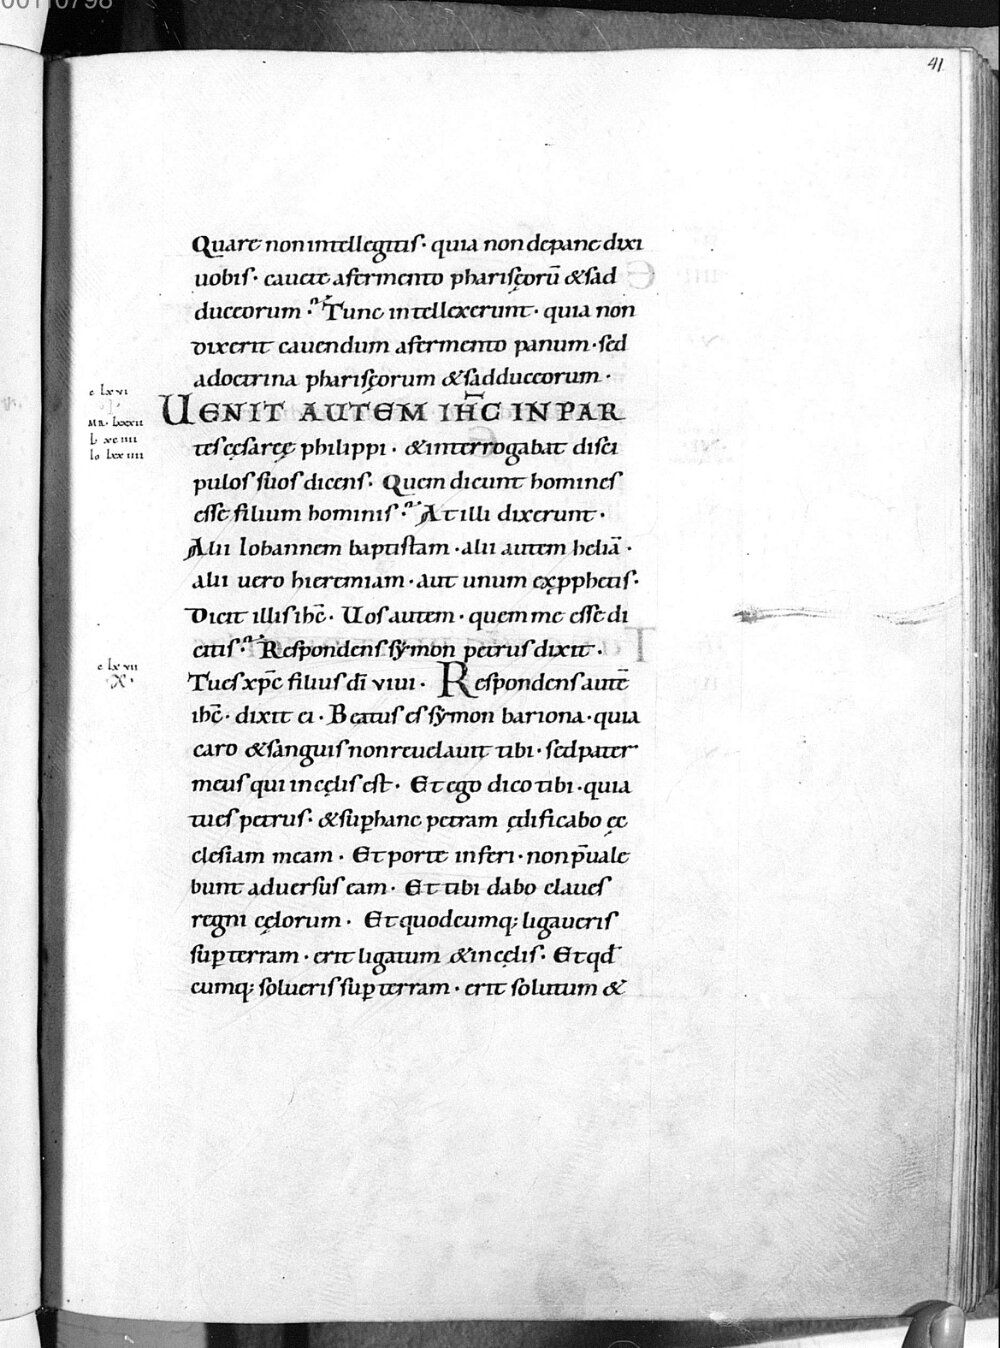 00110798
41
Quare non intellegitis· quia non depane dixi
uobis· cauete afermento pharisęorū &sad
duceorum· Tunc intellexerunt· quia non
dixerit cauendum afermento panum· sed
adoctrina pharisęorum &sadduceorum·
c lxvi
I
MR· lxxxii
L xciiii
Io lxxiiii
UENIT AUTEM IHC̄ IN PAR
tes cęsaręę philippi· &interrogabat disci
pulos suos dicens· Quem dicunt homines
esse filium hominis· At illi dixerunt·
Alii Iohannem baptistam· alii autem heliā·
alii uero hieremiam· aut unum exp̱phetis·
Dicit illis ihc̄· Uos autem· quem me esse di
citis· Respondens sẏmon petrus dixit·
c lxvii
·X·
Tu es xp̄c filius dī vivi· Respondens autē
ihc̄· dixit ei· Beatus es sẏmon bariona· quia
caro &sanguis non reuelauit tibi· sed pater
meus qui in cęlis est· Et ego dico tibi· quia
tu es petrus· &suꝑ hanc petram ędificabo ęc
clesiam meam· Et porte inferi· non p̄uale
bunt aduersus eam· Et tibi dabo claues
regni cęlorum· Et quodcumq; ligaueris
suꝑ terram· erit ligatum &in cęlis· Et qd̄
cumq; solueris suꝑ terram· erit solutum &